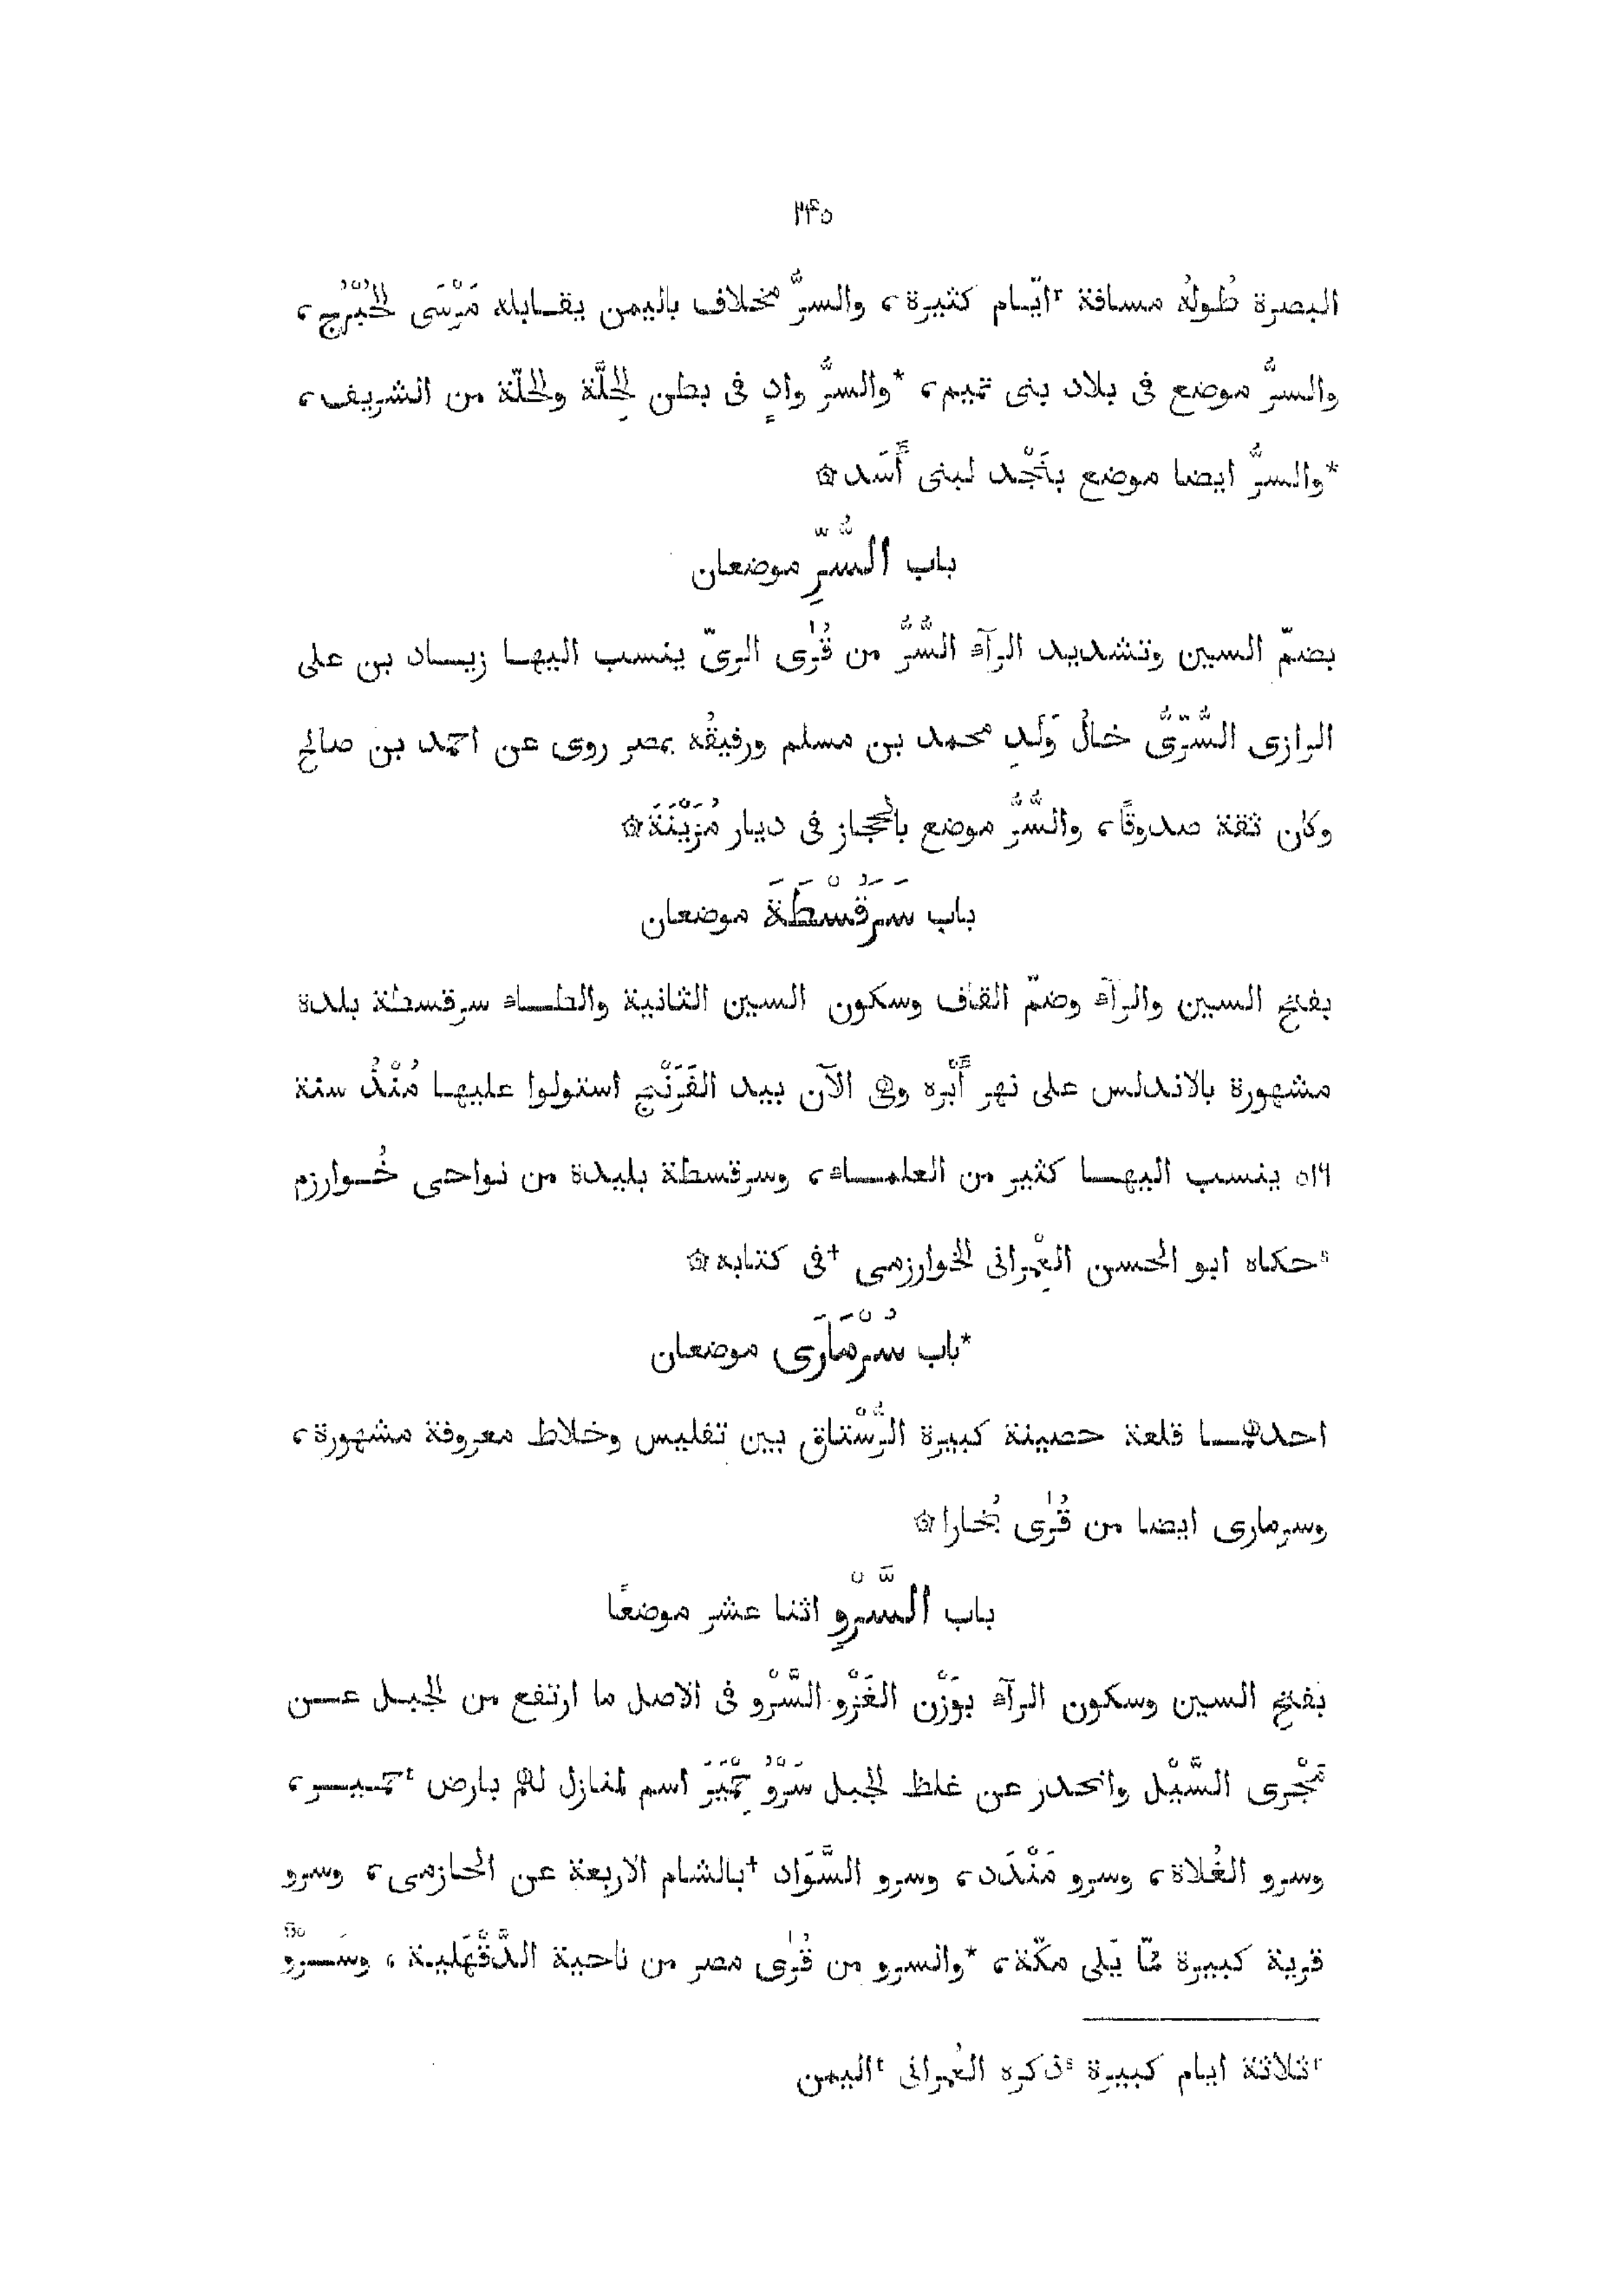 ٢٤٥
البصرة طُولهُ مسافة ٢ايّام كثيرة، والسرُّ مخلاف باليمن يقابله مَرْسَى الحُبْرُج،
والسرُّ موضع فى بلاد بنى تميم، *والسرُّ وادٍ فى بطن الحِلَّة والحلّة من الشريف،
*والسرُّ ايضا موضع بنَجْد لبنى أَسَد۞
باب السُّرِّ موضعان
بضمّ السين وتشديد الرآء السُّرُّ من قُرٰى الرىّ ينسب اليها زياد بن على
الرازى السُّرِّىُّ خالُ وَلَدِ محمد بن مسلم ورفيقُه بمصر روى عن احمد بن صالح
وكان ثقة صدوقًا، والسُّرُّ موضع بالحجاز فى ديار مُزَيْنَةَ۞
باب سَرَقُسْطَةَ موضعان
بفتح السين والرآء وضمّ القاف وسكون السين الثانية والطاء سرقسطة بلدة
مشهورة بالاندلس على نهر أَبْره وهى الآن بيد الفَرَنْج استولوا عليها مُنْذُ سنة
٥١٢ ينسب اليها كثير من العلماء، وسرقسطة بليدة من نواحى خُوارزم
sحكاه ابو الحسن العِمْرانى الخوارزمى †فى كتابه۞
*باب سُرْمَارَى موضعان
احدهما قلعة حصينة كبيرة الرُّسْتاق بين تفليس وخلاط معروفة مشهورة،
وسرمارى ايضا من قُرٰى بُخارا۞
باب السَّرْوِ اثنا عشر موضعًا
بفتح السين وسكون الرآء بوَزْن الغَزْو السَّرْو فى الاصل ما ارتفع من الجبل عن
مَجْرى السَّيْل وانحدر عن غلظ الجبل سَرْوُ حِمْيَرَ اسم لمنازل لهم بارض tحمير،
وسرو العُلاة، وسرو مَنْدَد، وسرو السَّوَاد †بالشام الاربعة عن الحازمى، وسرو
قرية كبيرة ممّا يَلى مكّة، *والسرو من قُرٰى مصر من ناحية الدَّقَهْلية، وسَرْوُ
rثلاثة ايام كبيرة sذكره العُمرانى tاليمن